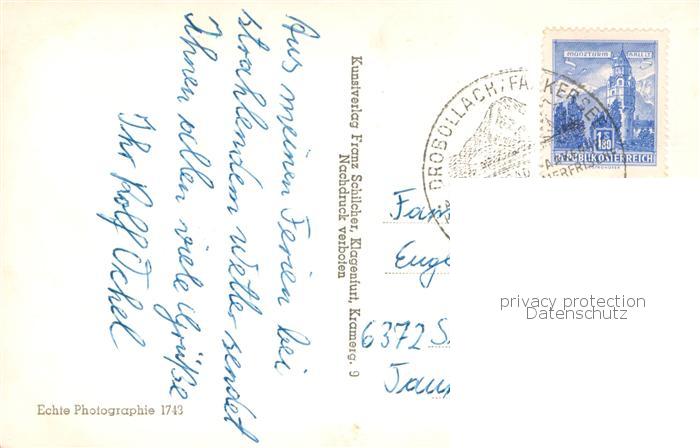 Aus meinen Ferien bei
strahlendem Wetter sendet
Ihnen allen viele Grüße
Ihr Rolf Ochel
Echte Photographie 1743
Kunstverlag Franz Schilcher, Klagenfurt, Kramerg. 9
Nachdruck verboten
MÜNZTURM HALL I. T.
1.80
REPUBLIK ÖSTERREICH
DROBOLLACH / FAAKERSEE
Fam
Euge
6372 S
Tau
privacy protection
Datenschutz